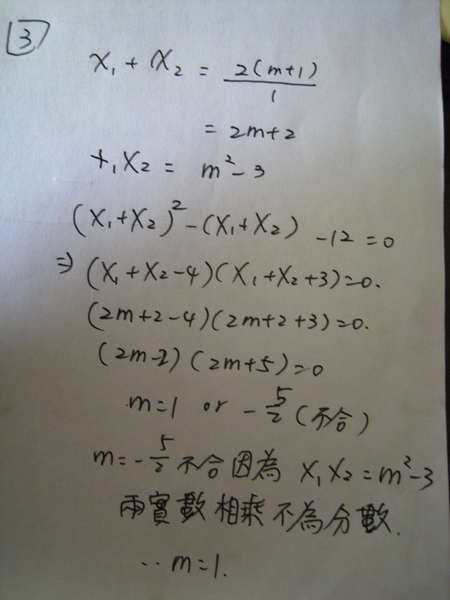 3
x₁ + x₂ = 2(m+1)/1
= 2m+2
x₁x₂ = m²-3
(x₁+x₂)²-(x₁+x₂) -12=0
⇒ (x₁+x₂-4)(x₁+x₂+3)=0.
(2m+2-4)(2m+2+3)=0.
(2m-2)(2m+5)=0
m=1 or -5/2 (不合)
m=-5/2 不合因為 x₁x₂=m²-3
兩實數相乘不為分數.
∴ m=1.